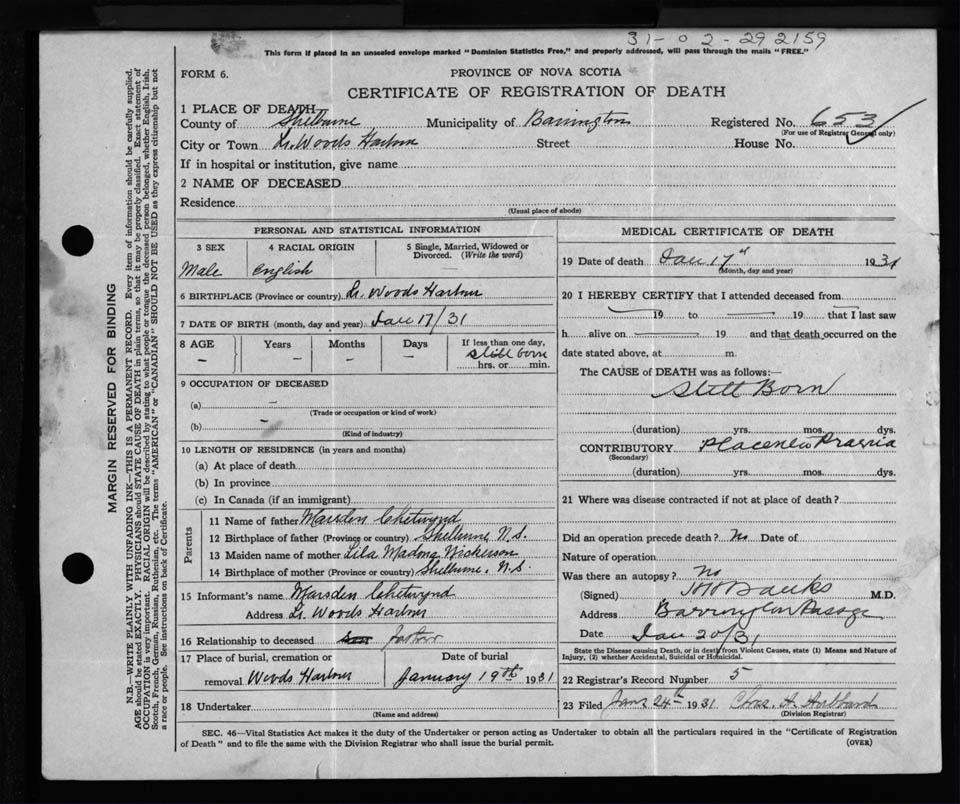 31-02-292159
This form if placed in an unsealed envelope marked "Dominion Statistics Free," and properly addressed, will pass through the mails "FREE."
FORM 6.
PROVINCE OF NOVA SCOTIA
CERTIFICATE OF REGISTRATION OF DEATH
1 PLACE OF DEATH
County of Shelburne Municipality of Barrington Registered No. 653
(For use of Registrar General only)
City or Town Lr. Woods Harbour Street House No.
If in hospital or institution, give name
2 NAME OF DECEASED
Residence
(Usual place of abode)
PERSONAL AND STATISTICAL INFORMATION
3 SEX 4 RACIAL ORIGIN 5 Single, Married, Widowed or Divorced. (Write the word)
Male English —
6 BIRTHPLACE (Province or country) Lr. Woods Harbour
7 DATE OF BIRTH (month, day and year) Jan 17/31
8 AGE Years Months Days If less than one day,
— — — — Still born
hrs. or min.
9 OCCUPATION OF DECEASED
(a) —
(Trade or occupation or kind of work)
(b) —
(Kind of industry)
10 LENGTH OF RESIDENCE (in years and months)
(a) At place of death
(b) In province
(c) In Canada (if an immigrant)
Parents
11 Name of father Marsden Chetwynd
12 Birthplace of father (Province or country) Shelburne N.S.
13 Maiden name of mother Lila Madona Nickerson
14 Birthplace of mother (Province or country) Shelburne, N.S.
15 Informant's name Marsden Chetwynd
Address Lr. Woods Harbour
16 Relationship to deceased father
17 Place of burial, cremation or Date of burial
removal Woods Harbour January 19th 1931
18 Undertaker
(Name and address)
MEDICAL CERTIFICATE OF DEATH
19 Date of death Jan 17 1931
(Month, day and year)
20 I HEREBY CERTIFY that I attended deceased from
19 to 19 that I last saw
h alive on 19 and that death occurred on the
date stated above, at m.
The CAUSE of DEATH was as follows:—
Still Born
(duration) yrs. mos. dys.
CONTRIBUTORY Placenta Praevia
(Secondary)
(duration) yrs. mos. dys.
21 Where was disease contracted if not at place of death?
Did an operation precede death? No Date of
Nature of operation
Was there an autopsy? No
(Signed) Banks M.D.
Address Barrington Passage
Date Jan 20/31
State the Disease causing Death, or in death from Violent Causes, state (1) Means and Nature of
Injury, (2) whether Accidental, Suicidal or Homicidal.
22 Registrar's Record Number 5
23 Filed Jany 24th 1931 Chas. A. Hubbard
(Division Registrar)
SEC. 46—Vital Statistics Act makes it the duty of the Undertaker or person acting as Undertaker to obtain all the particulars required in the "Certificate of Registration
of Death" and to file the same with the Division Registrar who shall issue the burial permit.
(OVER)
MARGIN RESERVED FOR BINDING
N.B.—WRITE PLAINLY WITH UNFADING INK—THIS IS A PERMANENT RECORD. Every item of information should be carefully supplied.
AGE should be stated EXACTLY. PHYSICIANS should STATE CAUSE OF DEATH in plain terms, so that it may be properly classified. Exact statement of
OCCUPATION is very important. RACIAL ORIGIN will be described by stating to what people or tongue the deceased person belonged, whether English, Irish,
Scotch, French, German, Russian, Ruthenian, etc. The terms "AMERICAN" or "CANADIAN" SHOULD NOT BE USED as they express citizenship but not
a race or people. See instructions on back of Certificate.